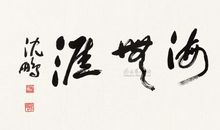 海無涯
沈鹏